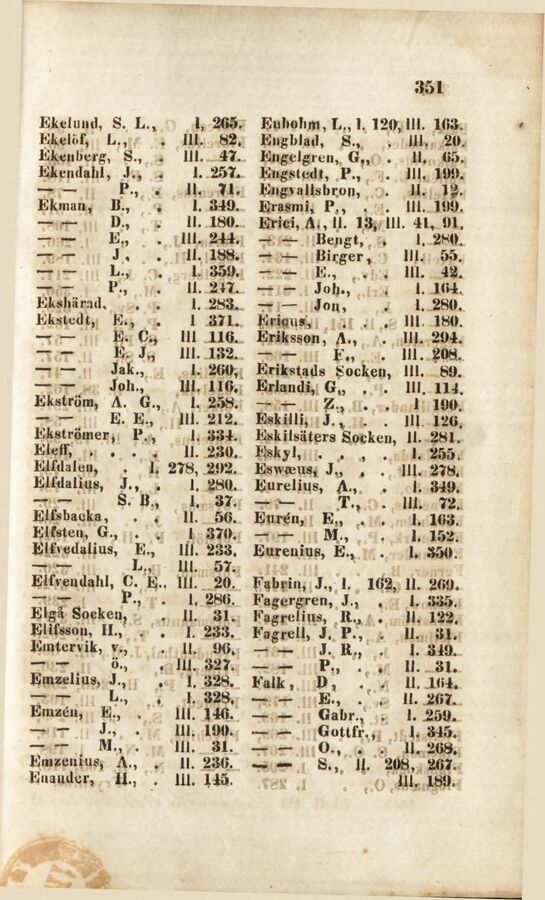 351
Ekelund, S. L., I, 265.
Ekelöf, L., III. 82.
Ekenberg, S., . III. 47.
Ekendahl, J., . I. 257.
— — P., . II. 71.
Ekman, B., . I. 349.
— — D., . II. 180.
— — E., . III. 244.
— — J. . II. 188.
— — L., . I. 359.
— — P., . II. 217.
Ekshärad. . . I. 283.
Ekstedt, E., . I 371.
— — E. C., III 116.
— — E. J., III 132.
— — Jak., . I. 260,
— — Joh., III. 116.
Ekström, A. G., I. 258.
— — E. E., III. 212.
Ekströmer, P., I. 334.
Eleff, . . . . II. 230.
Elfdalen, . I. 278, 292.
Elfdalius, J., . I. 280.
— — S. B., I. 37.
Elfsbacka, . . II. 56.
Elfsten, G., . I 370.
Elfvedalius, E., III. 233.
— — L., III. 57.
Elfvendahl, C. E.. III. 20.
— — P., . I. 286.
Elgå Socken, . II. 31.
Elifsson, H., . . I. 233.
Emtervik, v., . II. 96.
— — ö., . III. 327.
Emzelius, J., . I. 328.
— — L., . I. 328,
Emzén, E., . III. 146.
— — J., . III. 190.
— — M., . III. 31.
Emzenius, A., . II. 236.
Enander, H., . III. 145.
Enbohm, L., I. 120, III. 163.
Engblad, S., . III, 20.
Engelgren, G., . II. 65.
Engstedt, P., . III. 199.
Engvallsbron, . II. 12.
Erasmi, P., . . III. 199.
Erici, A., II. 13, III. 41, 91.
— — Bengt, . I. 280.
— — Birger, III. 55.
— — E., . . III. 42.
— — Joh., . I. 164.
— — Jon, . I. 280.
Ericus, . . . III. 180.
Eriksson, A., . III. 294.
— — F., . III. 208.
Erikstads Socken, III. 89.
Erlandi, G., . . III. 114.
— — Z., . . I 190.
Eskilli, J., . . III. 126.
Eskilsäters Socken, II. 281.
Eskyl, . . . . I. 255.
Eswæus, J., . III. 278.
Eurelius, A., . I. 349.
— — T., . III. 72.
Eurén, E., . . I. 163.
— — M., . . I. 152.
Eurenius, E., . I. 350.
Fabrin, J., I. 162, II. 269.
Fagergren, J., . I. 335.
Fagrelius, R., . II. 122.
Fagrell, J. P., . II. 31.
— — J. R., . I. 349.
— — P., . II. 31.
Falk, D, . . II. 164.
— — E., . . II. 267.
— — Gabr., . I. 259.
— — Gottfr., I. 345.
— — O., . . II. 268.
— — S., II. 208, 267.
III. 189.